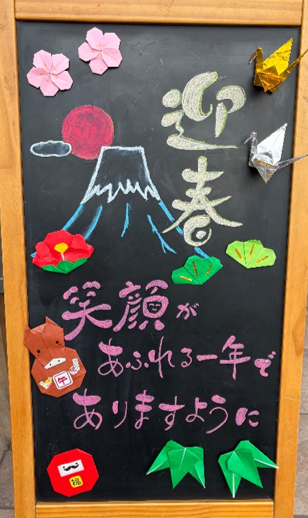 迎春
笑顔が
あふれる一年で
ありますように
福